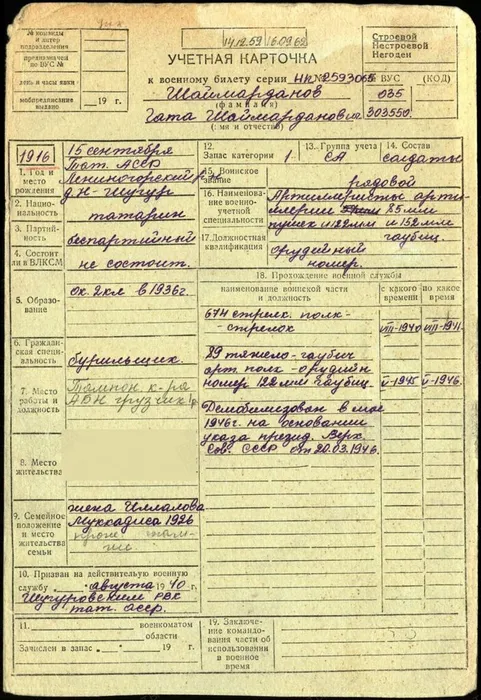 № команды
и литер
подразделения
предназначен
по ВУС №
день и часы явки
мобпредписание
выдано
19 г.
14.12.59
16.09.62
Строевой
Нестроевой
Негоден
УЧЕТНАЯ КАРТОЧКА
к военному билету серии НК № 2593065
ВУС
(КОД)
Шаймарданов
035
(фамилия)
Гата Шаймарданович
303550.
(имя и отчество)
1916
15 сентября
Тат. АССР
Лениногорский р-н
д-н-Шугур
1. Год и
место
рождения
2. Национальность
татарин
3. Партийность
беспартийный
4. Состоит
ли в ВЛКСМ
не состоит.
5. Образование
ок. 2 кл в 1936г.
6. Гражданская специальность
бурильщик.
7. Место
работы и
должность
Тампон. к-ра
грузчик
8. Место
жительства
9. Семейное
положение
и место
жительства
семьи
жена
Муккадиса 1926
10. Призван на действительную военную
службу „ “ августа 1940 г.
Шугуровским РВК
тат. асср.
11.
военкоматом
области
Зачислен в запас „ “ 19 г.
12.
Запас категории 1
13. Группа учета
СА
14. Состав
солдаты
15. Воинское
звание
рядовой
16. Наименование
военно-
учетной
специальности
Артиллеристы арти-
ллерии 85 мм
пушек и 122 мм и 152 мм
гаубиц.
17. Должностная
квалификация
орудийный
номер.
18. Прохождение военной службы
наименование воинской части
и должность
с какого
времени
по какое
время
674 стрелк. полк-
стрелок
VIII-1940
VIII-1941.
29 тяжело-гаубич
арт. полк-орудийн
номер 122 мм гаубиц.
V-1945
V-1946.
Демобилизован в мае
1946г. на основании
указа презид. Верх.
Сов. СССР от 20.03.1946.
19. Заключение
командования части об
использовании
в военное
время